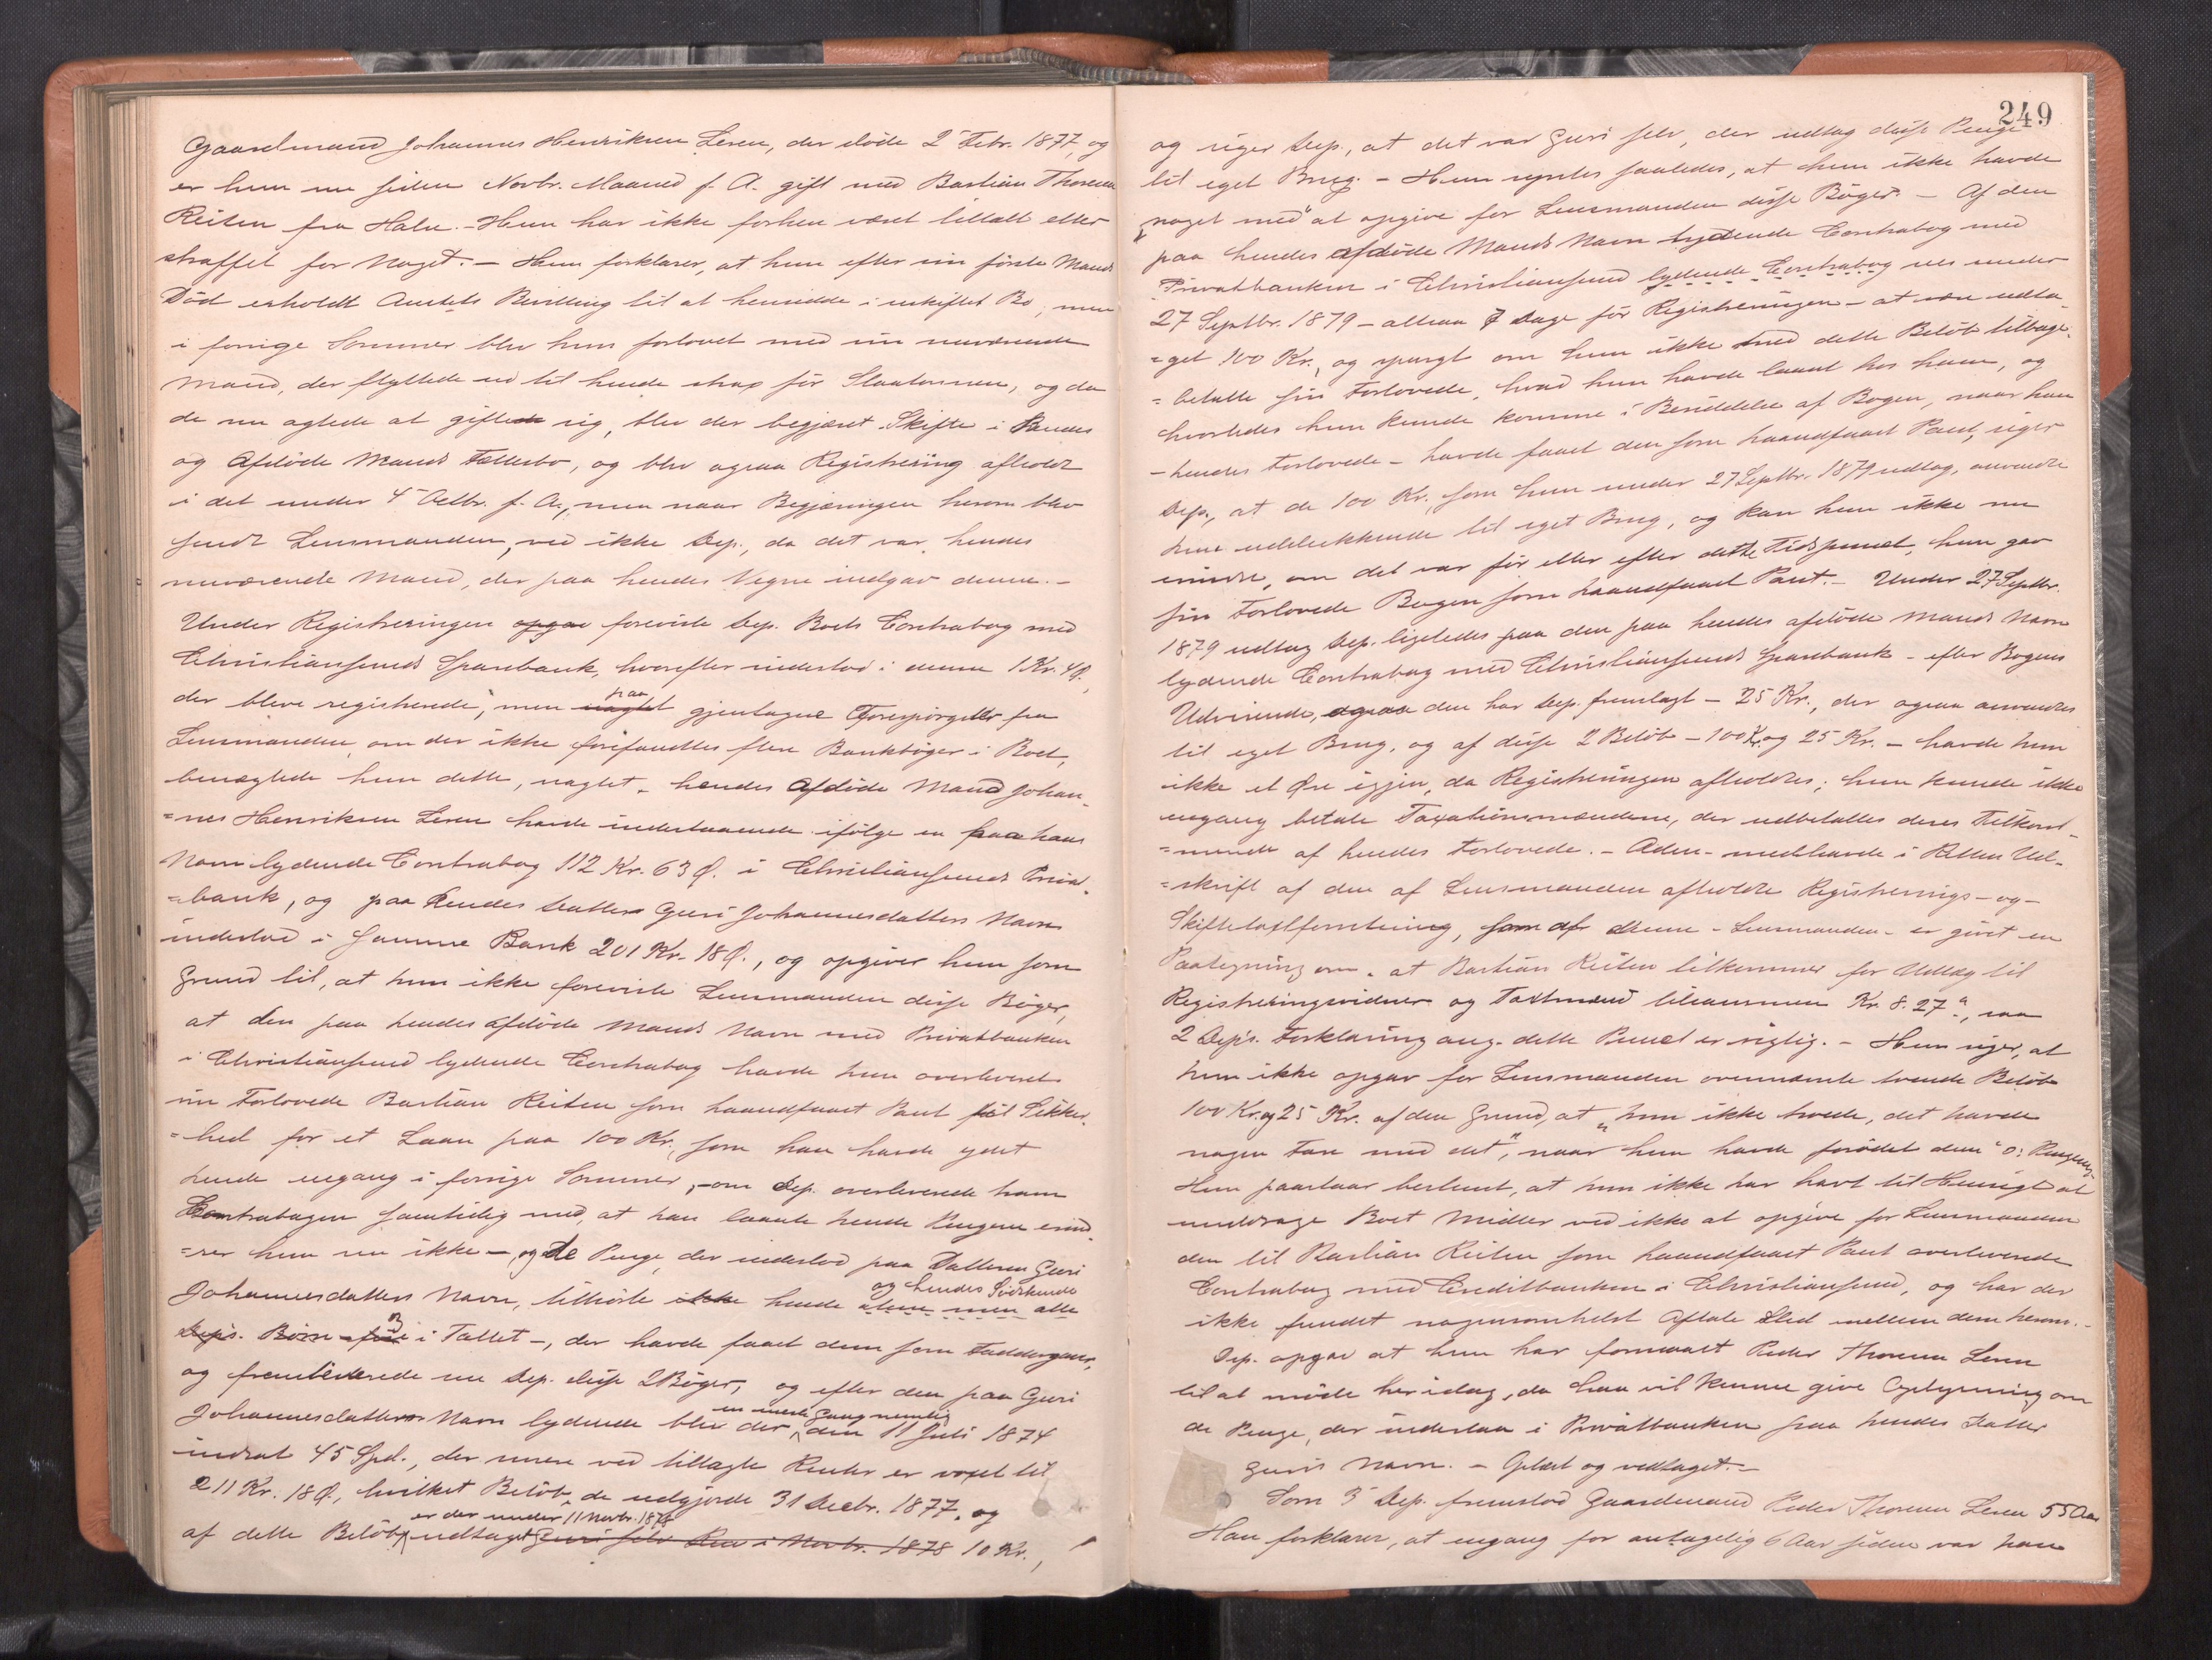 Gaardmand Johannes Henriksen Leren, der døde 2 Febr. 1877, og
er hun nu siden Novbr. Maaned f. A. gift med Bastian Thoresen
Reiten fra Halse. - Hun har ikke forhen været tiltalt eller
straffet for Noget. - Hun forklarer, at hun efter sin første Mands
Død erholdt Amtets Bevilling til at hensidde i uskiftet Bo, men
i forrige Sommer blev hun forlovet med sin nuværende
Mand, der flyttede ind til hende strax før Slaatonnen, og da
de nu agtede at gifte sig, blev der begjæret Skifte i hendes
og Afdøde Mands Fællesbo, og blev ogsaa Registrering afholdt
i det under 4 Octbr. f. A., men naar Begjæringen herom blev
sendt Lensmanden, ved ikke Dep., da det var hendes
nuværende Mand, der paa hendes Vegne indgav denne. -
Under Registreringen opgav foreviste Dep. Boets Contrabog med
Christianssunds Sparebank, hvorefter indestod i denne 1 Kr. 4 Ø.,
der bleve registrerede, men uagtet paa gjentagne Forespørgsler fra
Lensmanden, om der ikke forefandtes flere Bankbøger i Boet,
benægtede hun dette, uagtet hendes Afdøde Mand Johan-
=nes Henriksen Leren havde indestaaende ifølge en paa hans
Navn lydende Contrabog 112 Kr. 63 Ø. i Christianssunds Privat-
=bank, og paa hendes Datters Guri Johannesdatters Navn
indestod i samme Bank 201 Kr. 18 Ø., og opgiver hun som
Grund til, at hun ikke foreviste Lensmanden disse Bøger,
at den paa hendes afdøde Mands Navn med Privatbanken
i Christianssund lydende Contrabog havde hun overleveret
sin Forlovede Bastian Reiten som haandfaaet Pant til Sikker-
=hed for et Laan paa 100 Kr., som han havde ydet
hende engang i forrige Sommer, - om Dep. overleverede ham
Contrabogen samtidig med, at han laante hende Pengene erind-
=rer hun nu ikke -, og de Penge, der indestod paa Datteren Guri
Johannesdatters Navn, tilhørte ikke hende alene men alle og hendes Sødskende
Dep's. Børn - fire 3 i Tallet -, der havde faaet dem som Faddergaver,
og fremleverede nu Dep. disse 2 Bøger, og efter den paa Guri
Johannesdatters Navn lydende blev der en eneste Gang nemlig den 11 Juli 1874
indsat 45 Spd., der senere ved tillagte Renter er voxet til
211 Kr. 18 Ø., hvilket Beløb de udgjorde 31 Decbr. 1877, og
af dette Beløb er der under 11 Novbr. 1878 udtaget Guri selv den i Novbr. 1878 10 Kr.,
249
og siger Dep., at det var Guri selv, der udtog disse Penge
til eget Brug. - Hun syntes saaledes, at hun ikke havde
noget med at opgive for Lensmanden disse Bøger. - Af den
paa hendes afdøde Mands Navn lydende Contrabog med
Privatbanken i Christianssund lydende Contrabog sees under
27 Septbr. 1879 - altsaa 7 Dage før Registreringen - at være udta-
=get 100 Kr., og spurgt om hun ikke med dette Beløb tilbage-
=betalte sin Forlovede, hvad hun havde laant hos ham, og
hvorledes hun kunde komme i Besiddelse af Bogen, naar han
- hendes Forlovede - havde faaet den som haandfaaet Pant, siger
Dep., at de 100 Kr., som hun under 27 Septbr. 1879 udtog, anvendte
hun udelukkende til eget Brug, og kan hun ikke nu
mindes, om det var før eller efter dette Tidspunct, hun gav
sin Forlovede Bogen som haandfaaet Pant. - Under 27 Septbr.
1879 udtog Dep. ligeledes paa den paa hendes afdøde Mands Navn
lydende Contrabog med Christianssunds Sparebank - efter Bogens
Udvisende, ogsaa den har Dep. fremlagt - 25 Kr., der ogsaa anvendtes
til eget Brug, og af disse 2 Beløb - 100 Kr. og 25 Kr. - havde hun
ikke et Øre igjen, da Registreringen afholdtes; hun kunde ikke
engang betale Taxationsmændene, der udbetaltes deres Tilkom-
=mende af hendes Forlovede. - Adm. medhavde i Retten Ud-
=skrift af den af Lensmanden afholdte Registrerings- og
Skiftetaxtforretning, som af denne - Lensmanden - er givet en
Paategning om, at Bastian Reiten tilkommer for Udlæg til
Registreringsvidner og Taxtmænd tilsammen Kr. 8. 27, saa
2 Dep's. Forklaring ang. dette Punct er rigtig. - Hun siger, at
hun ikke opgav for Lensmanden ovennævnte tvende Beløb
100 Kr. og 25 Kr. af den Grund, at „hun ikke troede, det havde
nogen Fare med det", naar hun havde forødet dem ɔ: Pengene.
Hun paastaar bestemt, at hun ikke har havt til Hensigt at
unddrage Boet Midler ved ikke at opgive for Lensmanden
den til Bastian Reiten som haandfaaet Pant overleverede
Contrabog med Creditbanken i Christianssund, og har der
ikke fundet nogensomhelst Aftale Sted mellem dem herom. -
Dep. opgav at hun har formaaet Peder Thoresen Leren
til at møde her idag, da han vil kunne give Oplysning om
de Penge, der indestaa i Privatbanken paa hendes Datter
Guris Navn. - Oplæst og vedtaget. -
Som 3 Dep. fremstod Gaardmand Peder Thoresen Leren 55 Aar
Han forklarer, at engang for antagelig 6 Aar siden var han